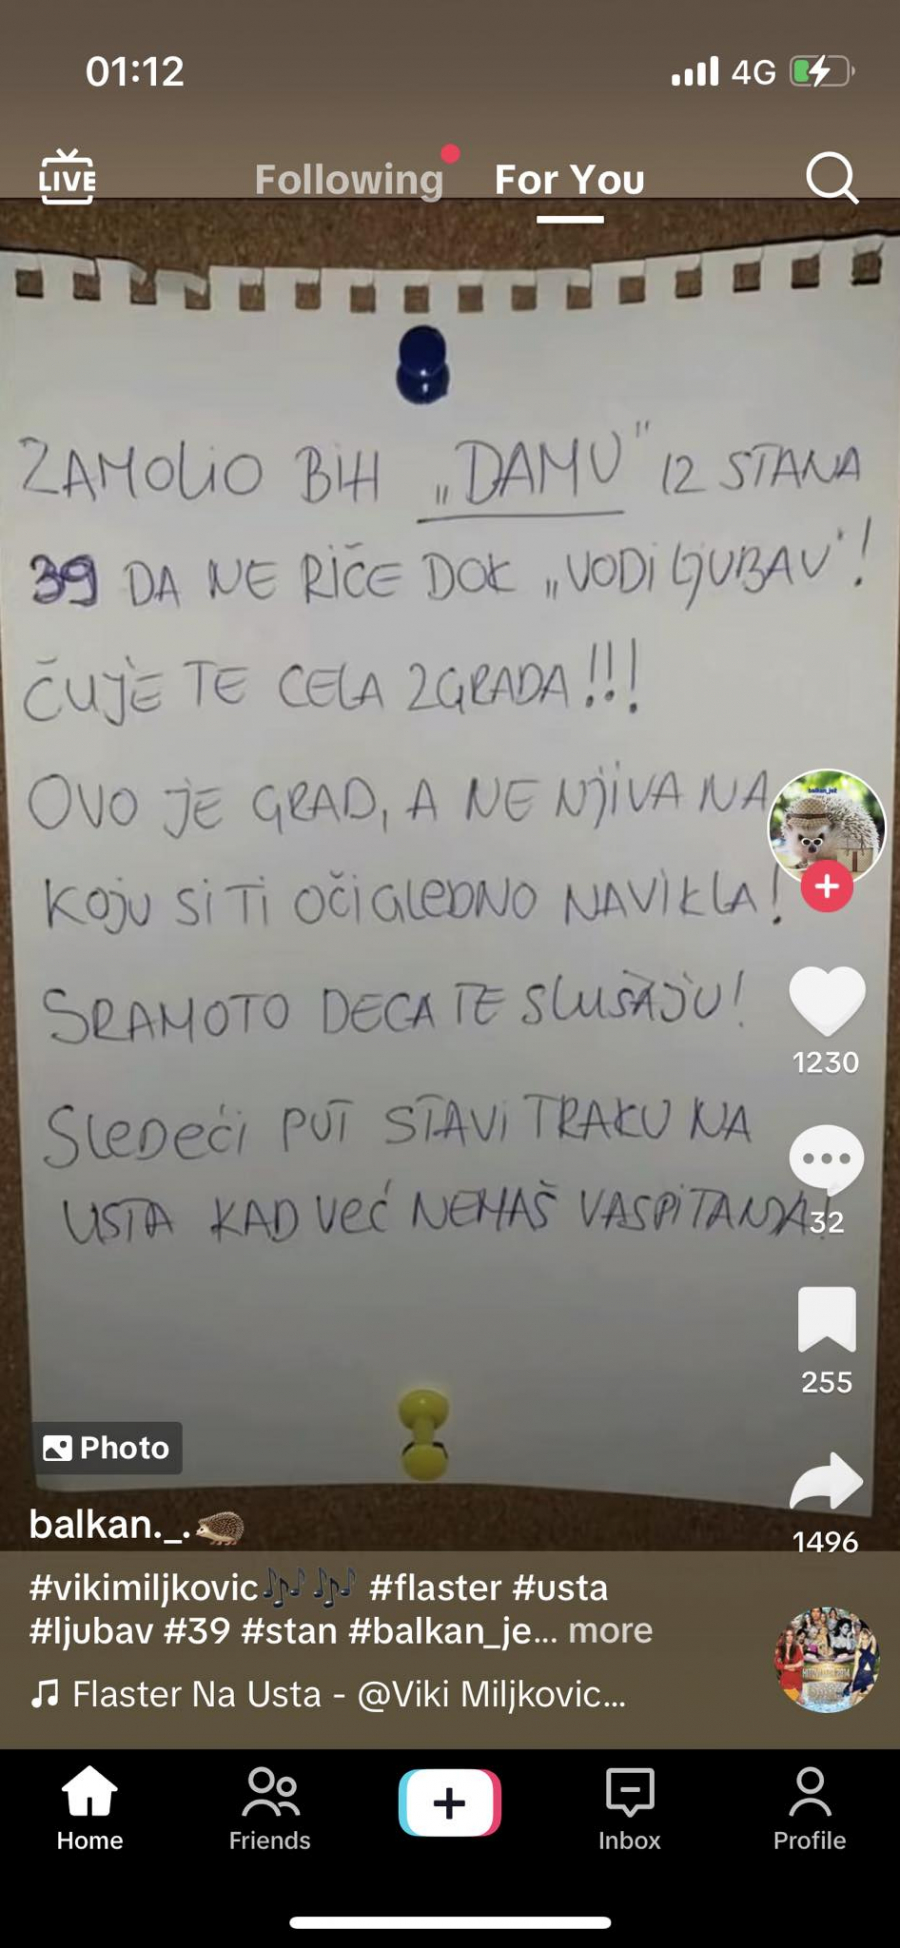 01:12
4G
LIVE
Following
For You
ZAMOLIO BIH „DAMU" IZ STANA
39 DA NE RIČE DOK „VODI LJUBAV"!
ČUJE TE CELA ZGRADA!!!
OVO JE GRAD, A NE NJIVA NA
KOJU SI TI OČIGLEDNO NAVIKLA!
SRAMOTO DECA TE SLUŠAJU!
SLEDEĆI PUT STAVI TRAKU NA
USTA KAD VEĆ NEMAŠ VASPITANJA!
1230
32
255
1496
Photo
balkan._.🦔
#vikimiljkovic🎶🎶 #flaster #usta
#ljubav #39 #stan #balkan_je... more
Flaster Na Usta - @Viki Miljkovic...
Home
Friends
Inbox
Profile